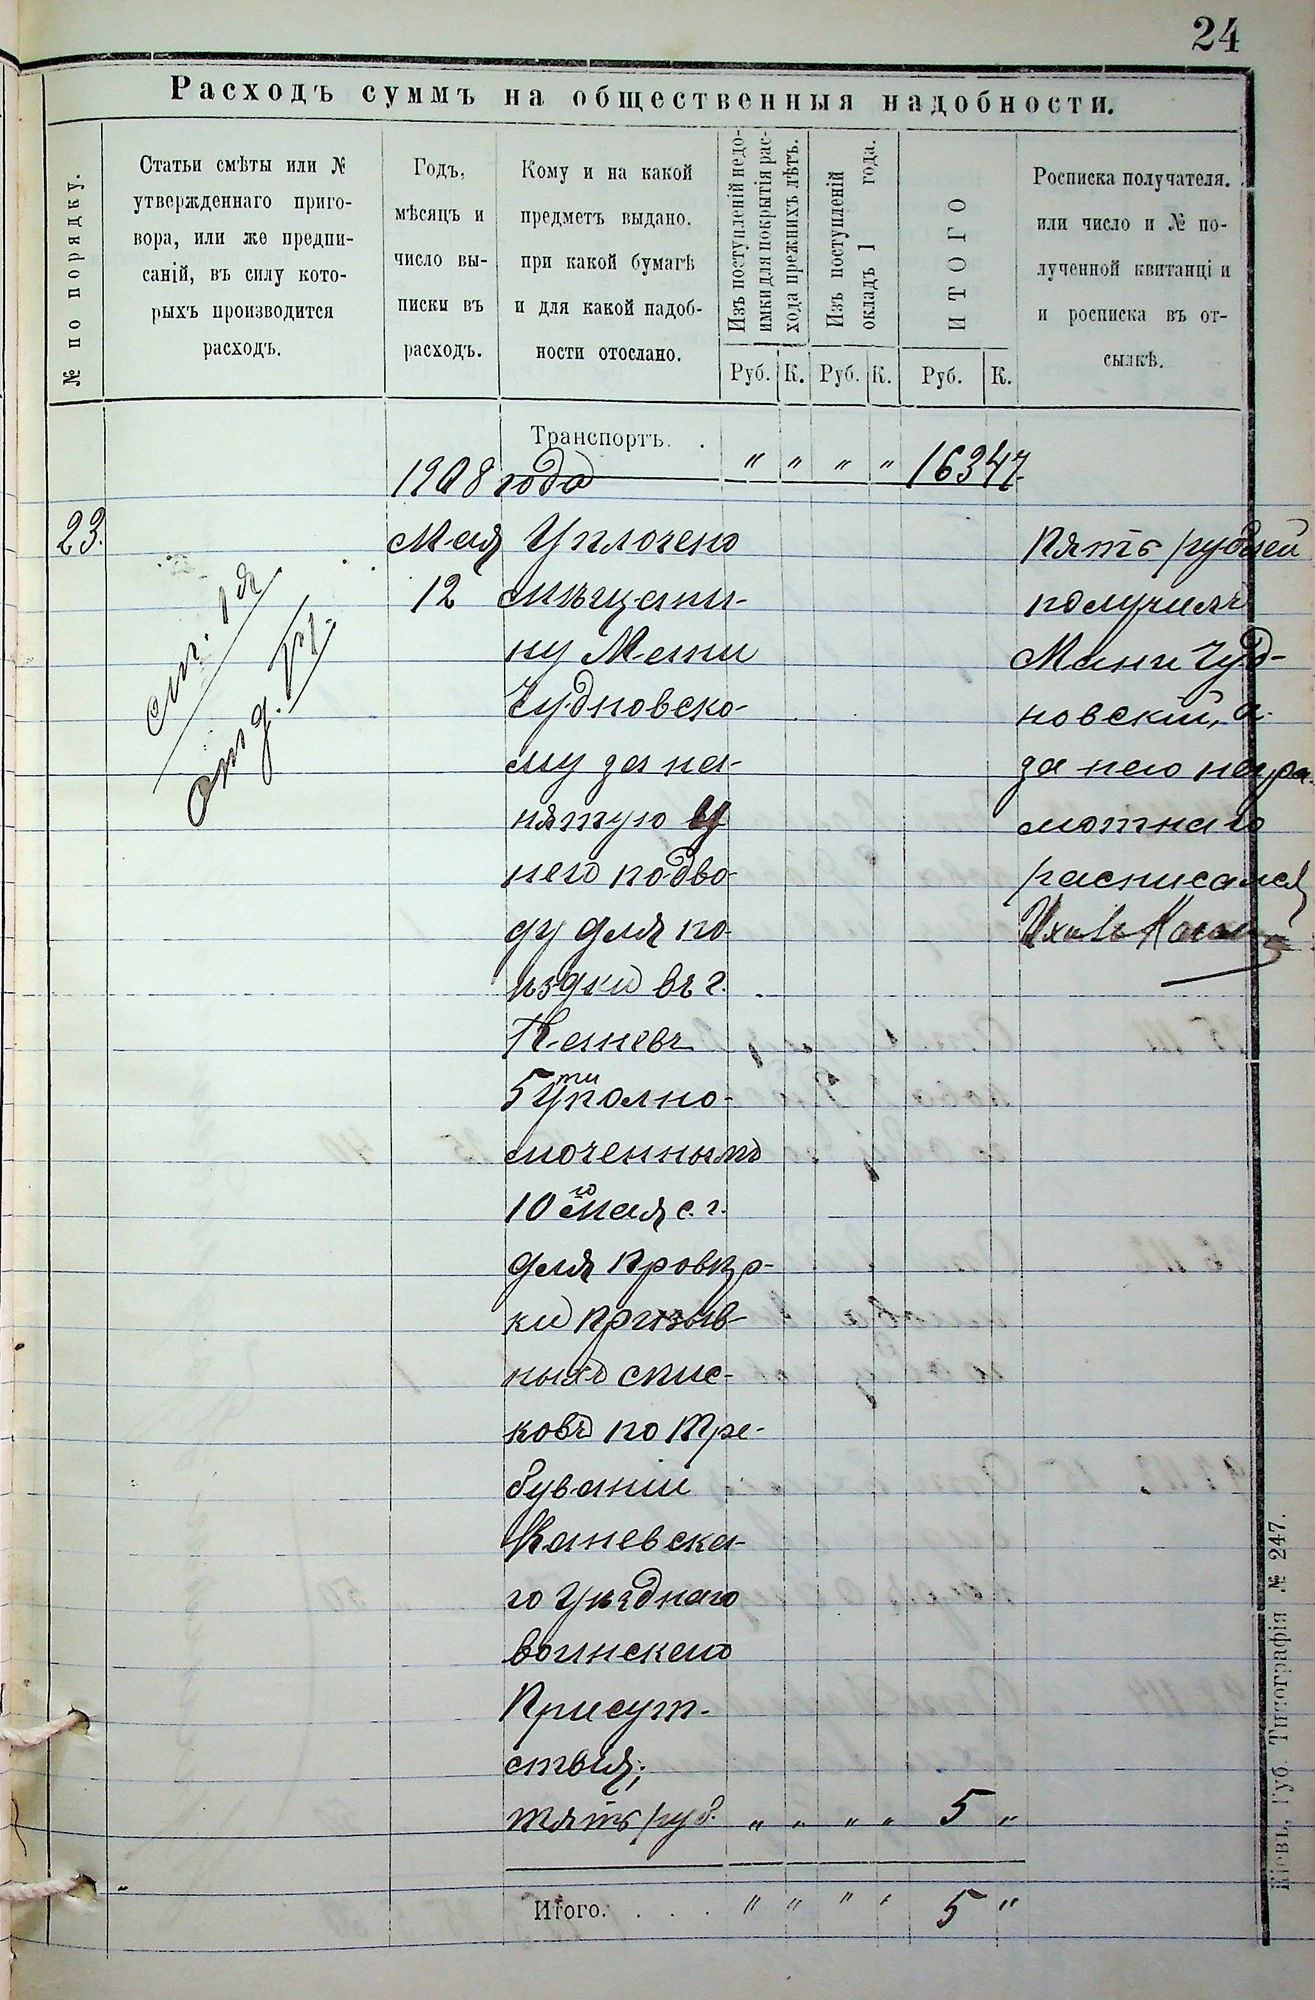 24
Расходъ суммъ на общественныя надобности.
№ по порядку.
Статьи смѣты или №
утвержденнаго приго-
вора, или же предпи-
саній, въ силу кото-
рыхъ производится
расходъ.
Годъ,
мѣсяцъ и
число вы-
писки въ
расходъ.
Кому и на какой
предметъ выдано.
при какой бумагѣ
и для какой надоб-
ности отослано.
Изъ поступленій недо-
имки для покрытія рас-
хода прежнихъ лѣтъ.
Изъ поступленій
окладъ 1 года.
ИТОГО
Росписка получателя.
или число и № по-
лученной квитанціи
и росписка въ от-
сылкѣ.
Руб. К. Руб. К. Руб. К.
Транспортъ. . " " " " 163 47.
1908 года
23. Мая Уплочено
12 мѣщани-
ну Мани
Чудновско-
му за на-
нятую у
него подво-
ду для по-
ѣздки въ г.
Каневъ
5ти уполно-
моченнымъ
10го мая с. г.
для провѣр-
ки призыв-
ныхъ спис-
ковъ по тре-
буваніи
Каневска-
го Уѣзднаго
воинскаго
Присут-
ствія;
пять руб. " " " " 5 "
ст. 1я
отд. VI.
Пять рублей
получилъ
Мани Чуд-
новскій, а
за него негра-
мотнаго
расписался
Итого. . . . " " " " 5 "
Кіевъ, Губ. Типографія № 247.